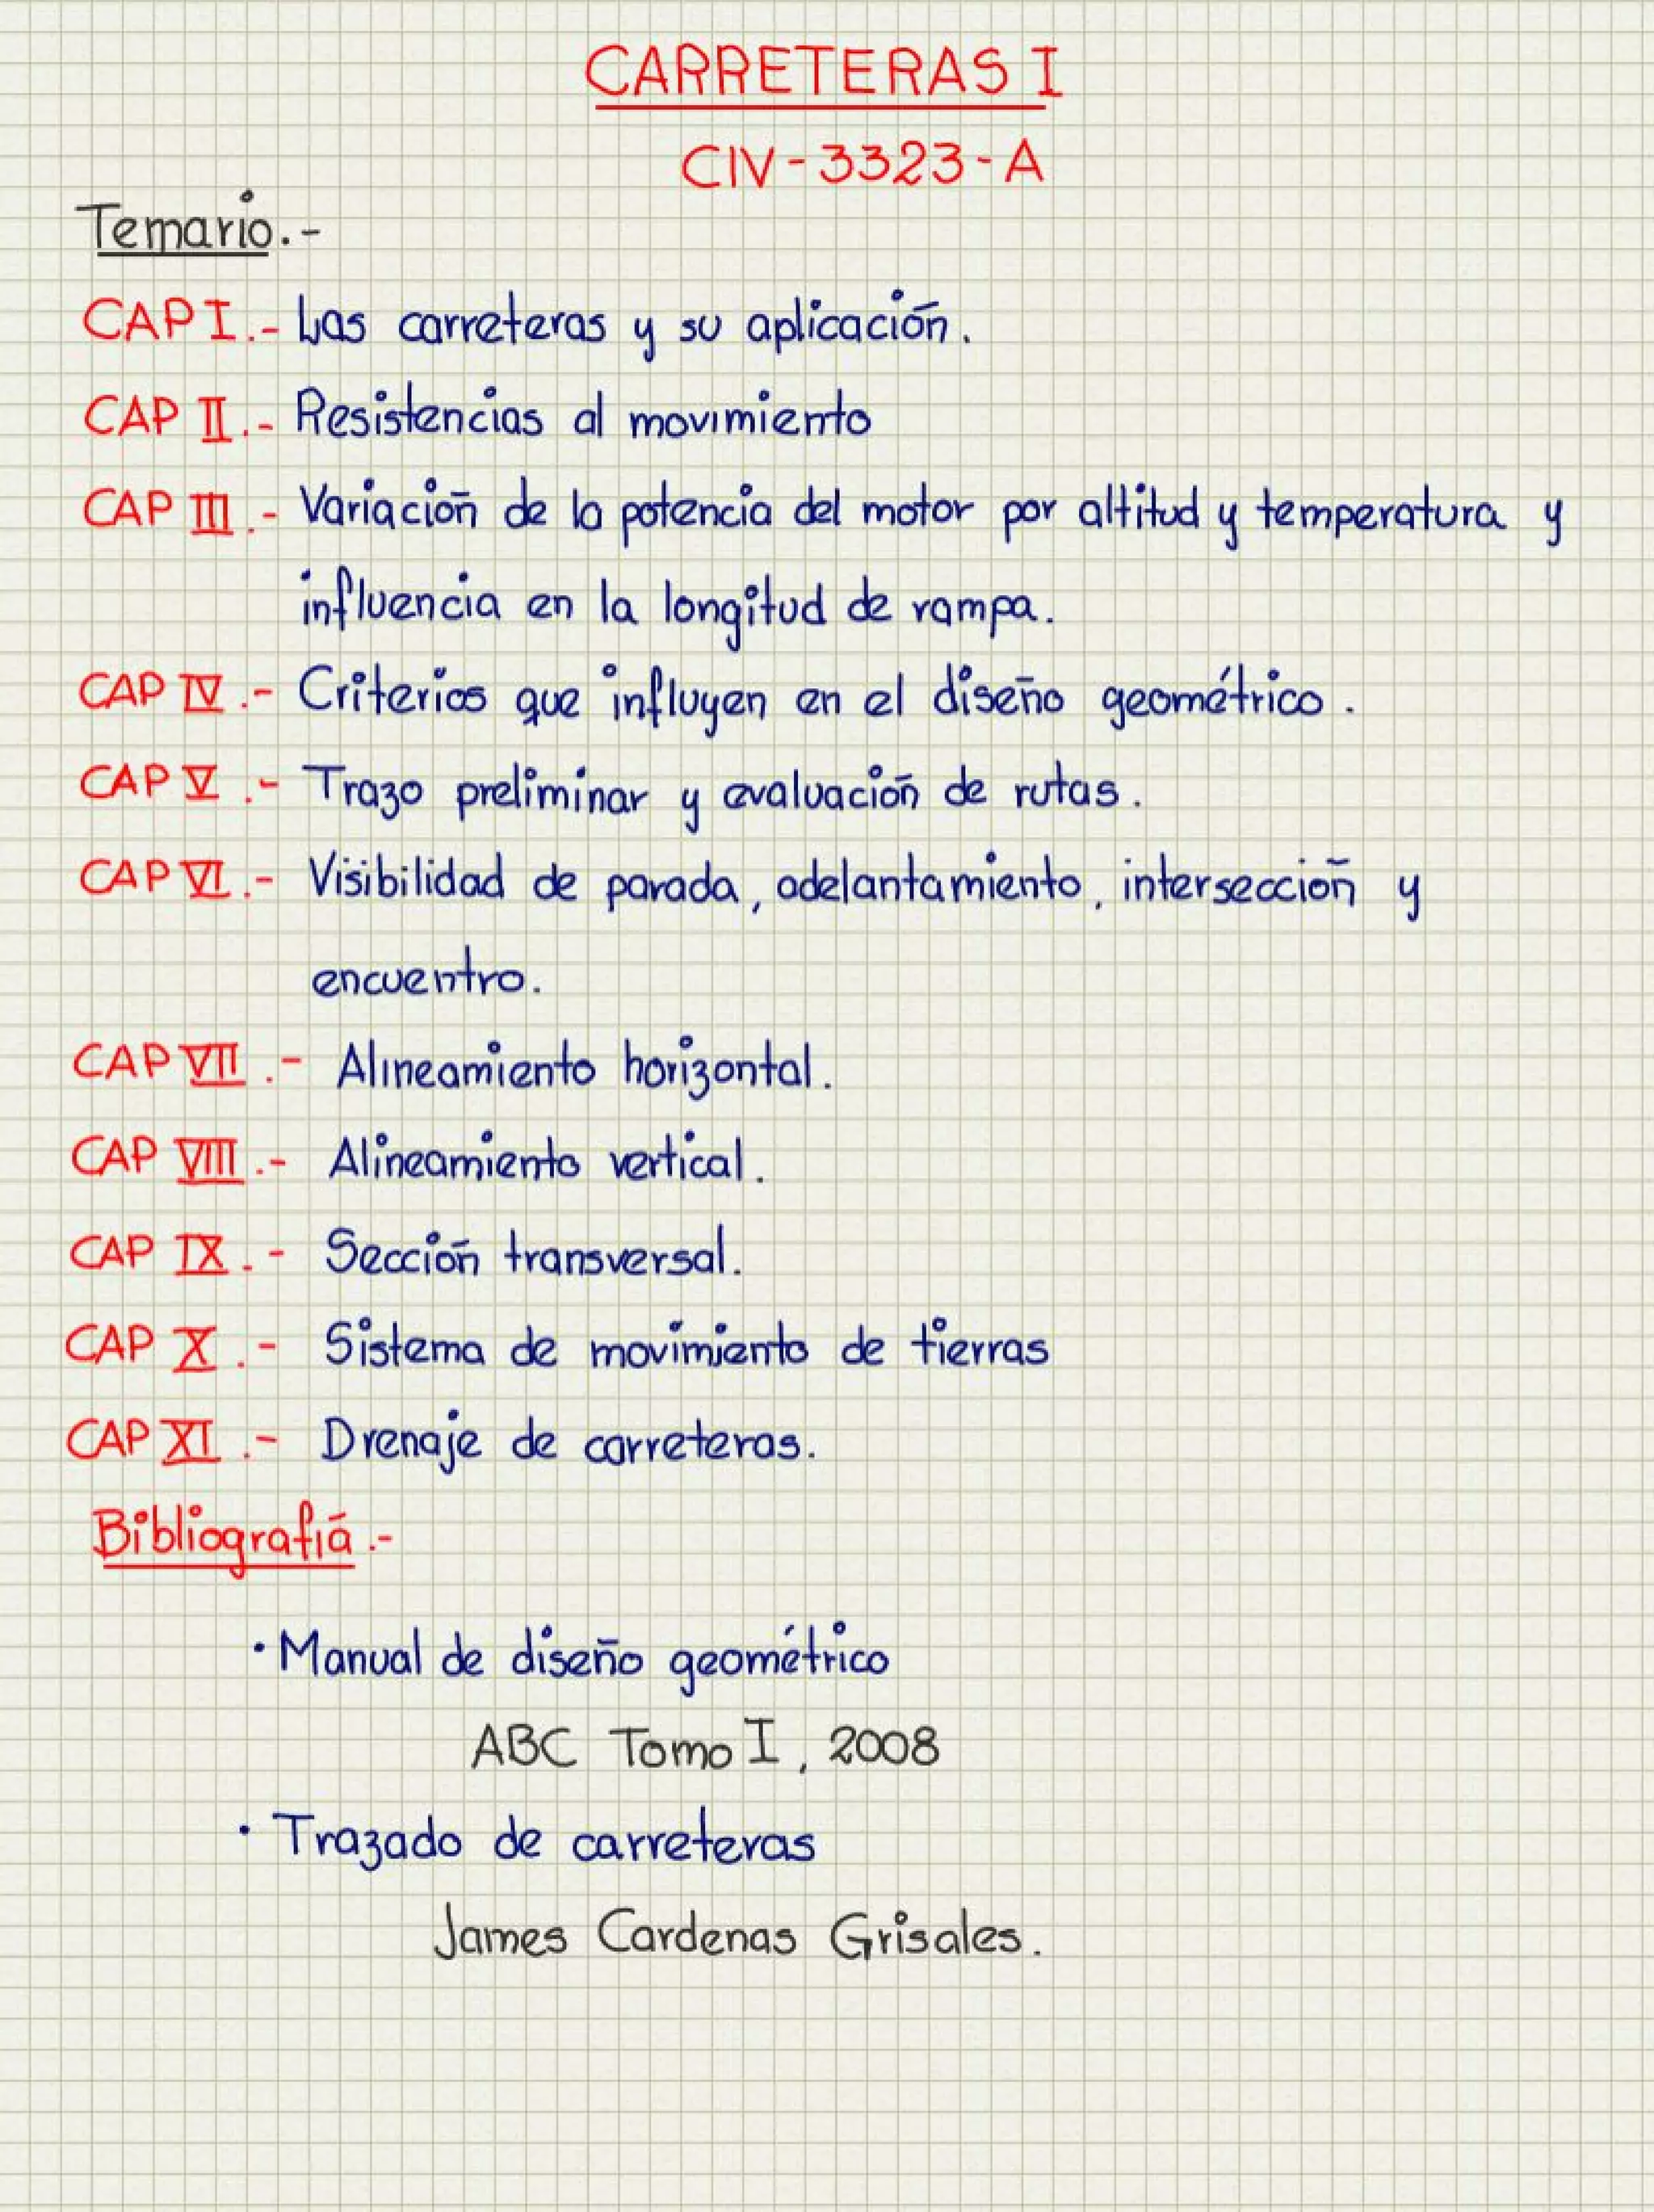 CARRETERAS I
CIV-3323-A
Temario.-
CAP I.- Las carreteras y su aplicación.
CAP II.- Resistencias al movimiento
CAP III.- Variación de la potencia del motor por altitud y temperatura y
influencia en la longitud de rampa.
CAP IV.- Criterios que influyen en el diseño geométrico.
CAP V.- Trazo preliminar y evaluación de rutas.
CAP VI.- Visibilidad de parada, adelantamiento, intersección y
encuentro.
CAP VII.- Alineamiento horizontal.
CAP VIII.- Alineamiento vertical.
CAP IX.- Sección transversal.
CAP X.- Sistema de movimiento de tierras
CAP XI.- Drenaje de carreteras.
Bibliografía.-
· Manual de diseño geométrico
ABC Tomo I, 2008
· Trazado de carreteras
James Cardenas Grisales.